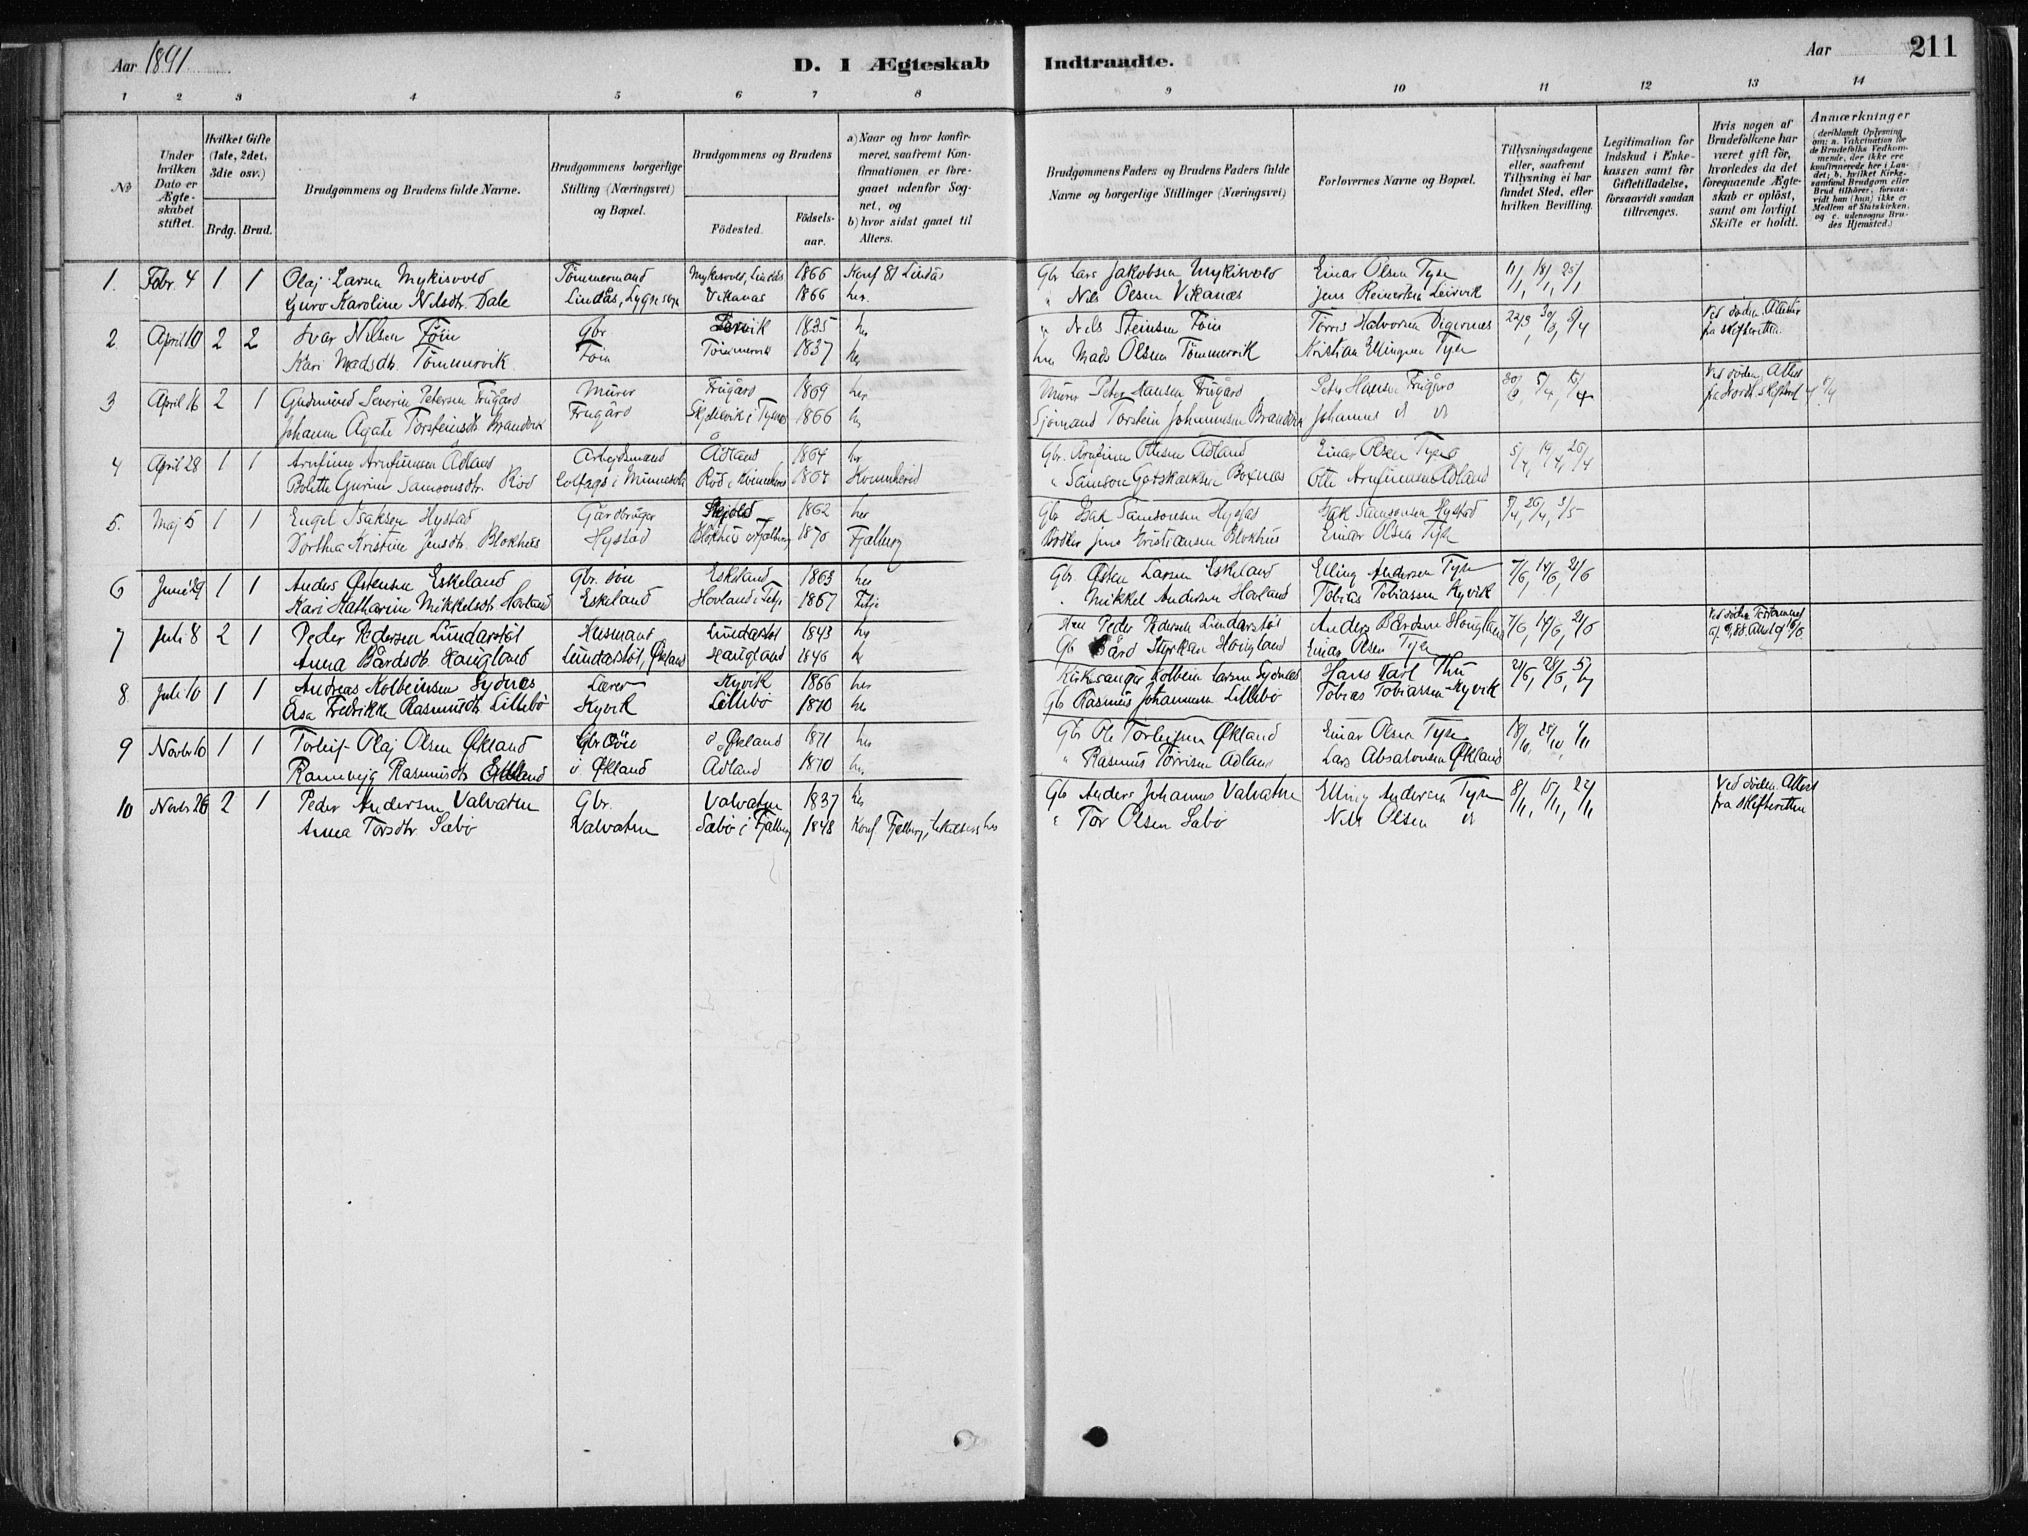 Aar 1891
D. I Ægteskab Indtraadte.
Aar 211
1 2 3 4 5 6 7 8 9 10 11 12 13 14
No
Under hvilken Dato er Ægteskabet stiftet.
Hvilket Gifte (1ste, 2det, 3die osv.)
Brdg. Brud.
Brudgommens og Brudens fulde Navne.
Brudgommens borgerlige Stilling (Næringsvei) og Bopæl.
Brudgommens og Brudens
Födested.
Födselsaar.
a) Naar og hvor konfirmeret, saafremt Konfirmationen er foregaaet udenfor Sognet, og
b) hvor sidst gaaet til Alters.
Brudgommens Faders og Brudens Faders fulde Navne og borgerlige Stillinger (Næringsvei)
Forlovernes Navne og Bopæl.
Tillysningsdagene eller, saafremt Tillysning ei har fundet Sted, efter hvilken Bevilling.
Legitimation for Indskud i Enkekassen samt for Giftetilladelse, forsaavidt saadan tiltrænges.
Hvis nogen af Brudefolkene har været gift før, hvorledes da det foregaaende Ægteskab er oplöst, samt om lovligt Skifte er holdt.
Anmærkninger
(deriblandt Oplysning om: a. Vakcination for de Brudefolks Vedkommende, der ikke ere konfirmerede her i Landet; b. hvilket Kirkesamfund Brudgom eller Brud tilhører, forsaavidt han (hun) ikke er Medlem af Statskirken, og c. udensogns Brudes Hjemsted.)
1. Febr. 4 1 1 Olaj Larsen Mykisvold Tömmermand Mykisvold, Lindås 1866 Konf 81 Lindås Gbr Lars Jakobsen Mykisvold Einar Olsen Tyse 11/1, 18/1, 25/1
Guro Karoline Nilsdtr. Dale Lindås, Vikanas 1866 her. " Nils Olsen Vikanæs Jens Reinertsen Leirvik
2 April 10 2 2 Ivar Nilsen Töin Gbr. 1835 her " Nils Steinsen Töin Törris Halvorsen Digernes 22/3, 30/3, 5/4 Ved döden. Attest fra skifteretten.
Kari Madsdtr. Tömmervik Töin Tömmervik 1837 her Mads Olsen Tömmervik Kristian Ellingsen Tyse
3 April 16 2 1 Gudmund Severin Petersen Frugård Murer Frugård 1869 her Murer Peter Hansen Frugård Peter Hansen Frugård 30/3, 5/4, 15/4 Ved döden. Attest
Johanna Agate Torsteinsdtr. Brandvik Frugård i Tysnes 1866 her Sjömand Torstein Johannesen Brandvik Johannes
4 April 28 1 1 Arnfinn Arnfinnsen Ådland Arbejdsmand Ådland 1864 her Gbr. Arnfinn Ottesen Ådland Einar Olsen Tyse 5/4, 19/4, 26/4
Bolette Gurine Samsonsdtr. Röd i Minnesota Röd i Kvinnherred 1864 Kvinnherred " Samson Gotskalksen Boxnæs Otte Arnfinnsen Ådland
5. Maj 5 1 1 Engel Isaksen Hystad Gårdbruger Skjold 1862 her Gbr Isak Samsonsen Hystad Isak Samsonsen Hystad
Dorthea Kristine Jensdtr. Blokhus Hystad Blokhus i Fjelberg 1870 Fjelberg Jens Kristiansen Blokhus Einar Olsen Tyse
6 Juni 29 1 1 Anders Østensen Eskeland Gbr. sön Eskeland 1863 her Gbr. Østen Larsen Eskeland Elling Andersen Tyse 7/6, 14/6, 21/6
Kari Katharine Mikkelsdtr. Hovland Eskeland Hovland i Fitje 1867 Fitje " Mikkel Andersen Hovland Tobias Tobiassen Kyvik
7 Juli 8 2 1 Peder Pedersen Lundarstöl Husmand Lundarstöl 1843 her Peder Pedersen Lundarstöl Anders Bårdsen Haugland 7/6, 14/6, 21/6
Anna Bårdsdtr. Haugland Lundarstöl, Økland Haugland 1846 her Gbr Bård Styrksen Haugland Einar Olsen Tyse
8. Juli 10 1 1 Andreas Kolbeinsen Sydnes Lærer Kyvik 1866 her Kirkesanger Kolbein Larsen Sydnes Hans Karl Thu 21/6, 28/6, 5/7
Åsa Fredrikke Rasmusdtr. Lillebö Kyvik Lillebö 1870 her Gbr Rasmus Johannesen Lillebö Tobias Tobiassen Kyvik
9 Novbr 10 1 1 Torleif Olaj Olsen Økland Gbr Økland 1871 her Gbr Ole Torleifsen Økland Einar Olsen Tyse 18/10, 25/10, 1/11
Rannveig Rasmusdtr. Økland Ådland 1870 her. " Rasmus Törrisen Adland Lars Absalonsen Økland
10 Novbr 26 2 1 Peder Andersen Valvatne Gbr. Valvatne 1837 her Gbr Anders Johannes Valvatne Elling Andersen Tyse 8/11, 15/11, 22/11 Ved döden. Attest fra skifteretten
Anna Torsdtr. Sæbö Valvatne Sæbö i Fjelberg 1848 Konf Fjelberg, her " Tor Olsen Sæbö Nils Olsen